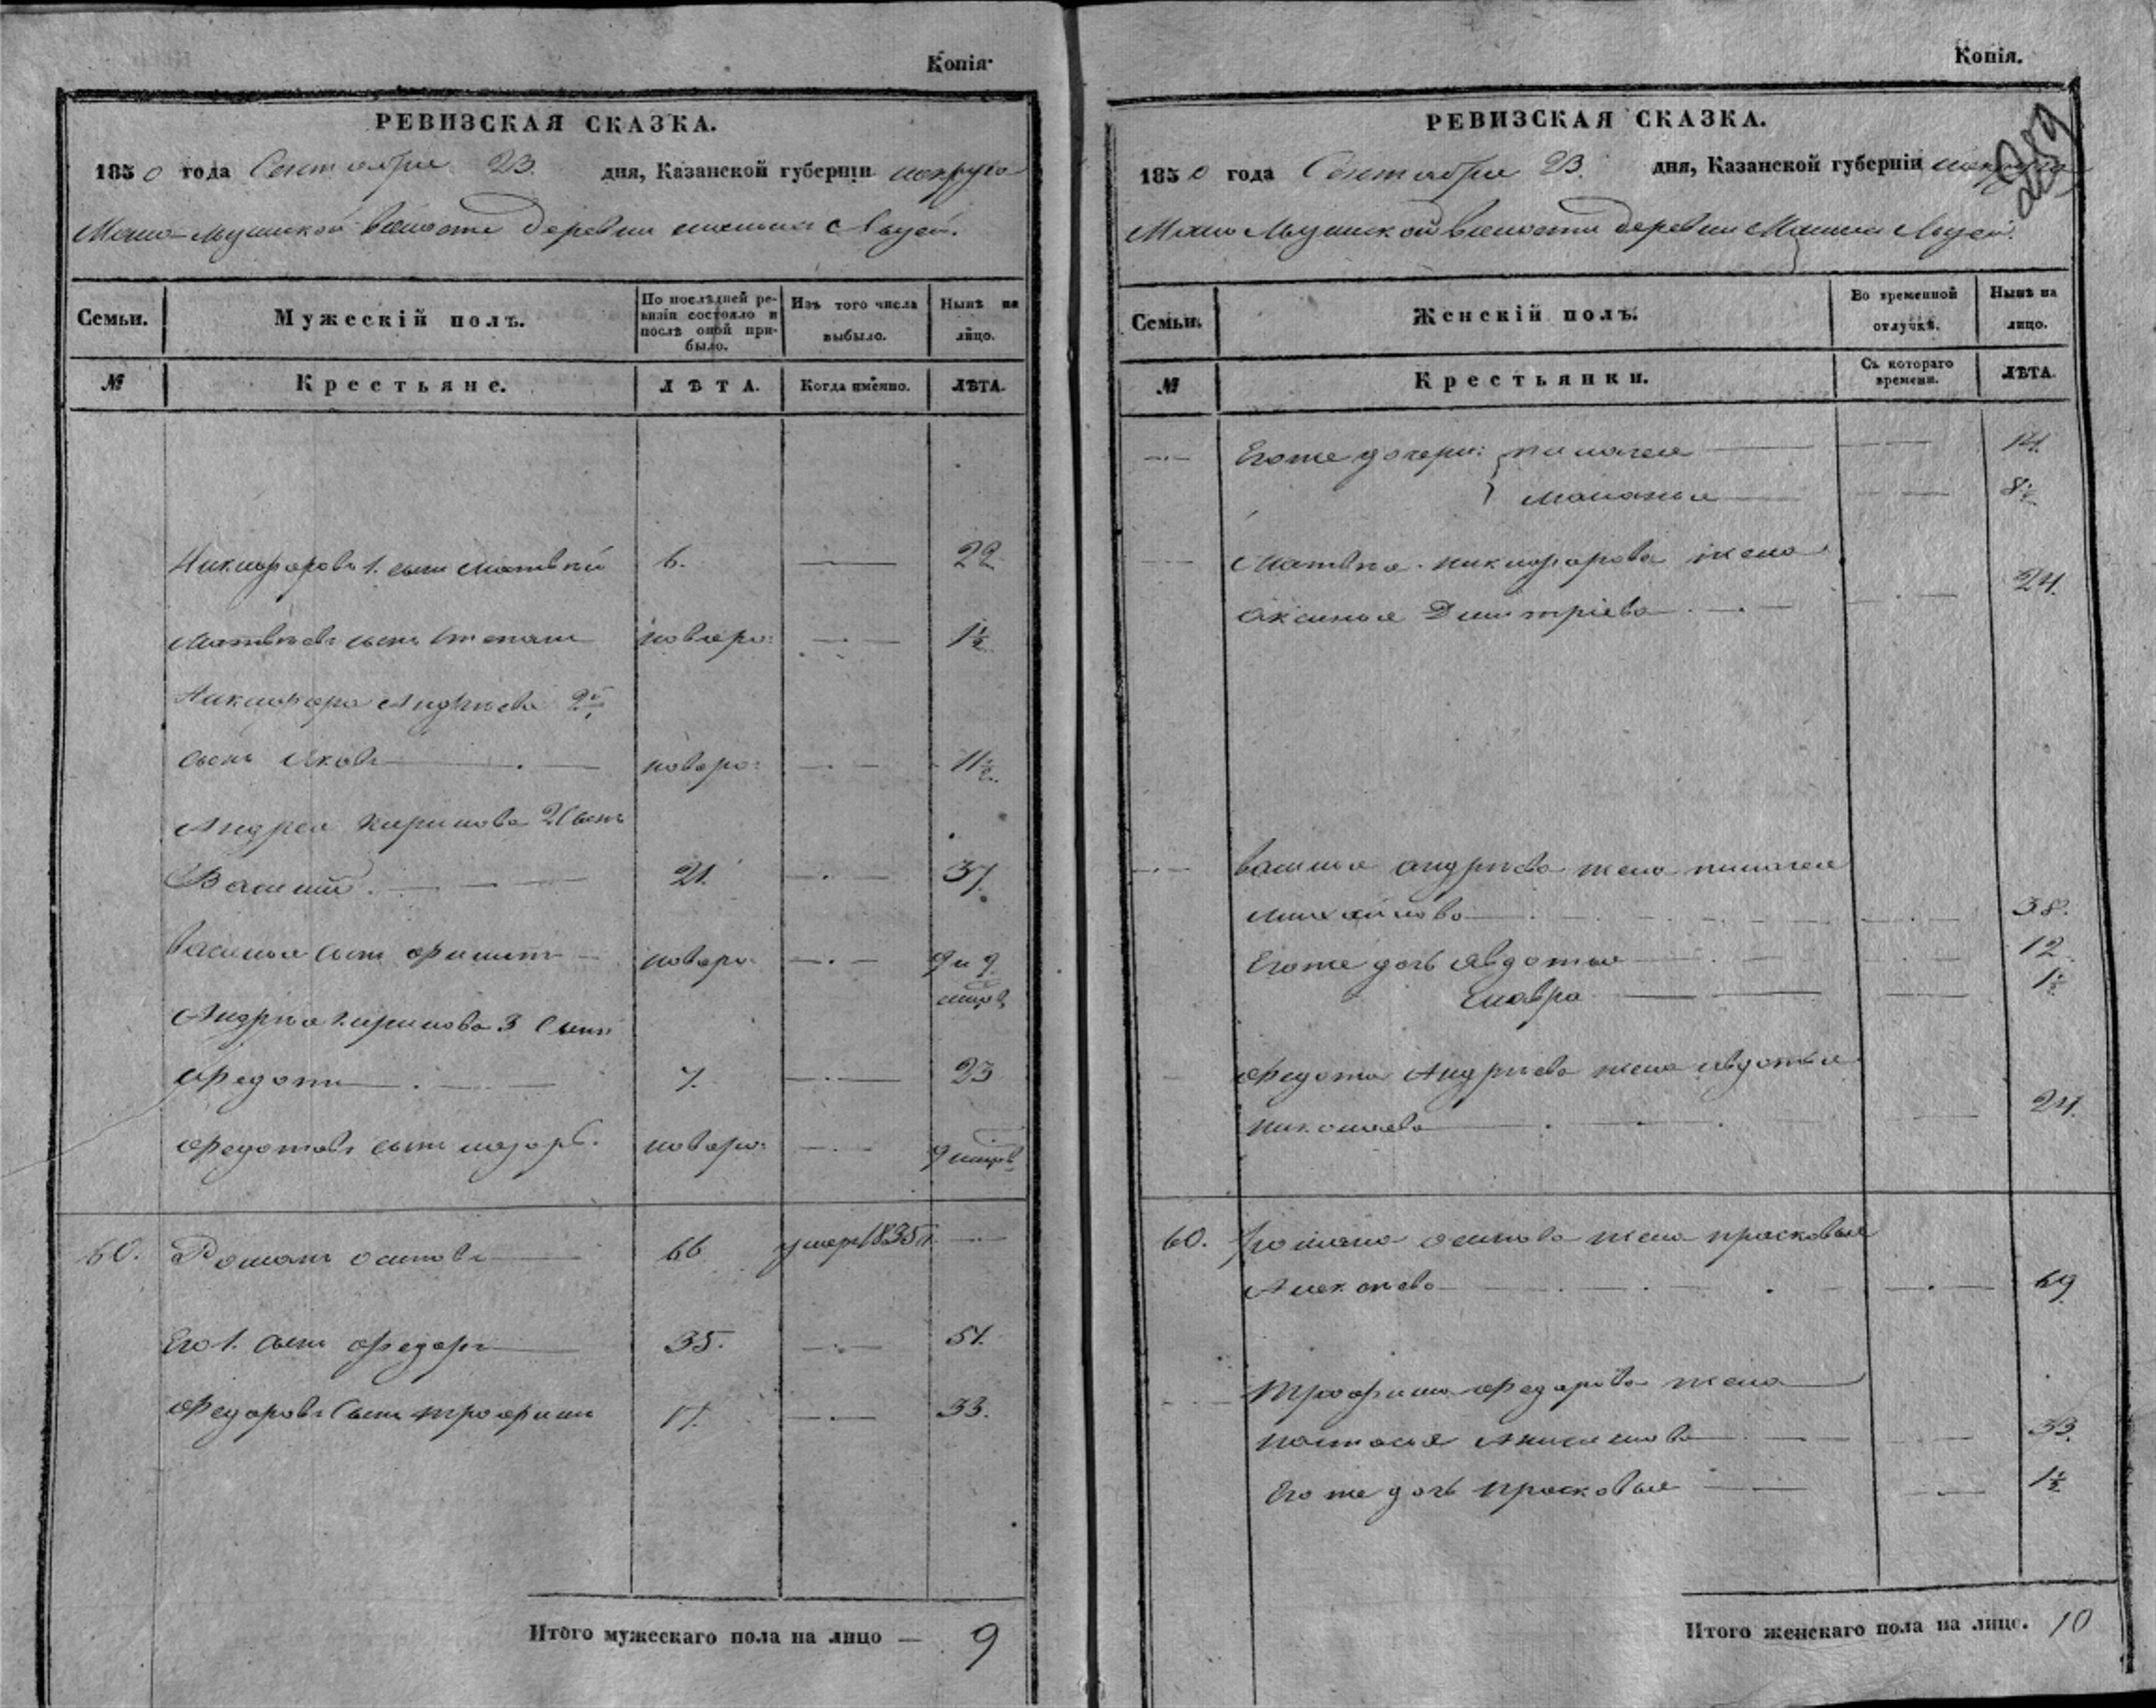 Копія.
РЕВИЗСКАЯ СКАЗКА.
1850 года Сентября 23. дня, Казанской губерніи
волости деревни
Семьи. Мужескій полъ. По послѣдней ревизіи состояло и послѣ оной прибыло. Изъ того числа выбыло. Нынѣ на лицо.
№ Крестьяне. ЛѢТА. Когда именно. ЛѢТА.
Никифоровъ 1. сынъ Матвѣй 6. 22
Матвѣевъ сынъ Степанъ новоро: 1½
Никифора Андрѣева 2й
сынъ Яковъ новоро: 11½
Андрея Кирилова 2 Сынъ
Василій 21. 37.
Василья сынъ Филипъ новоро: 9 и 9
Андрѣя Кирилова 3 Сынъ
Федотъ 7. 23
Федотовъ сынъ новоро: 9
60. Романъ Осиповъ 66 умеръ 1835 г.
Его 1. сынъ Федоръ 35. 51.
Федоровъ Сынъ Трофимъ 17. 33.
Итого мужескаго пола на лицо — 9
Копія.
РЕВИЗСКАЯ СКАЗКА.
1850 года Сентября 23. дня, Казанской губерніи
волости деревни
Семьи. Женскій полъ. Во временной отлучкѣ. Нынѣ на лицо.
№ Крестьянки. Съ котораго времени. ЛѢТА.
Егоже дочери: Пилагея 14.
Маланья 8½
Матвѣя Никифорова жена
Аксинья Димитріева 24.
Василья Андрѣева жена Пилагея
Михайлова 38.
Егоже дочь Авдотья 12
1½
Федота Андрѣева жена Авдотья
Николаева 24.
60. Романа Осипова жена Прасковья
Алексѣева 69
Трофима Федорова жена
Настасья 33.
Егоже дочь Прасковья 1½
Итого женскаго пола на лицо. 10